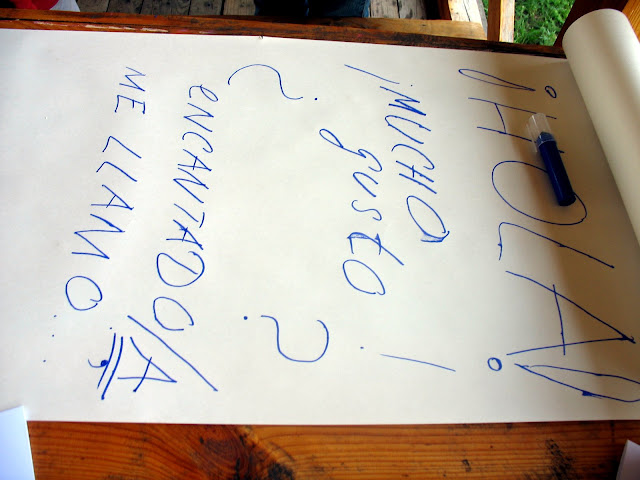 ¡HOLA!
¡MUCHO
gusto !
¿ ?
eNCANTADO/A
ME LLAMO...